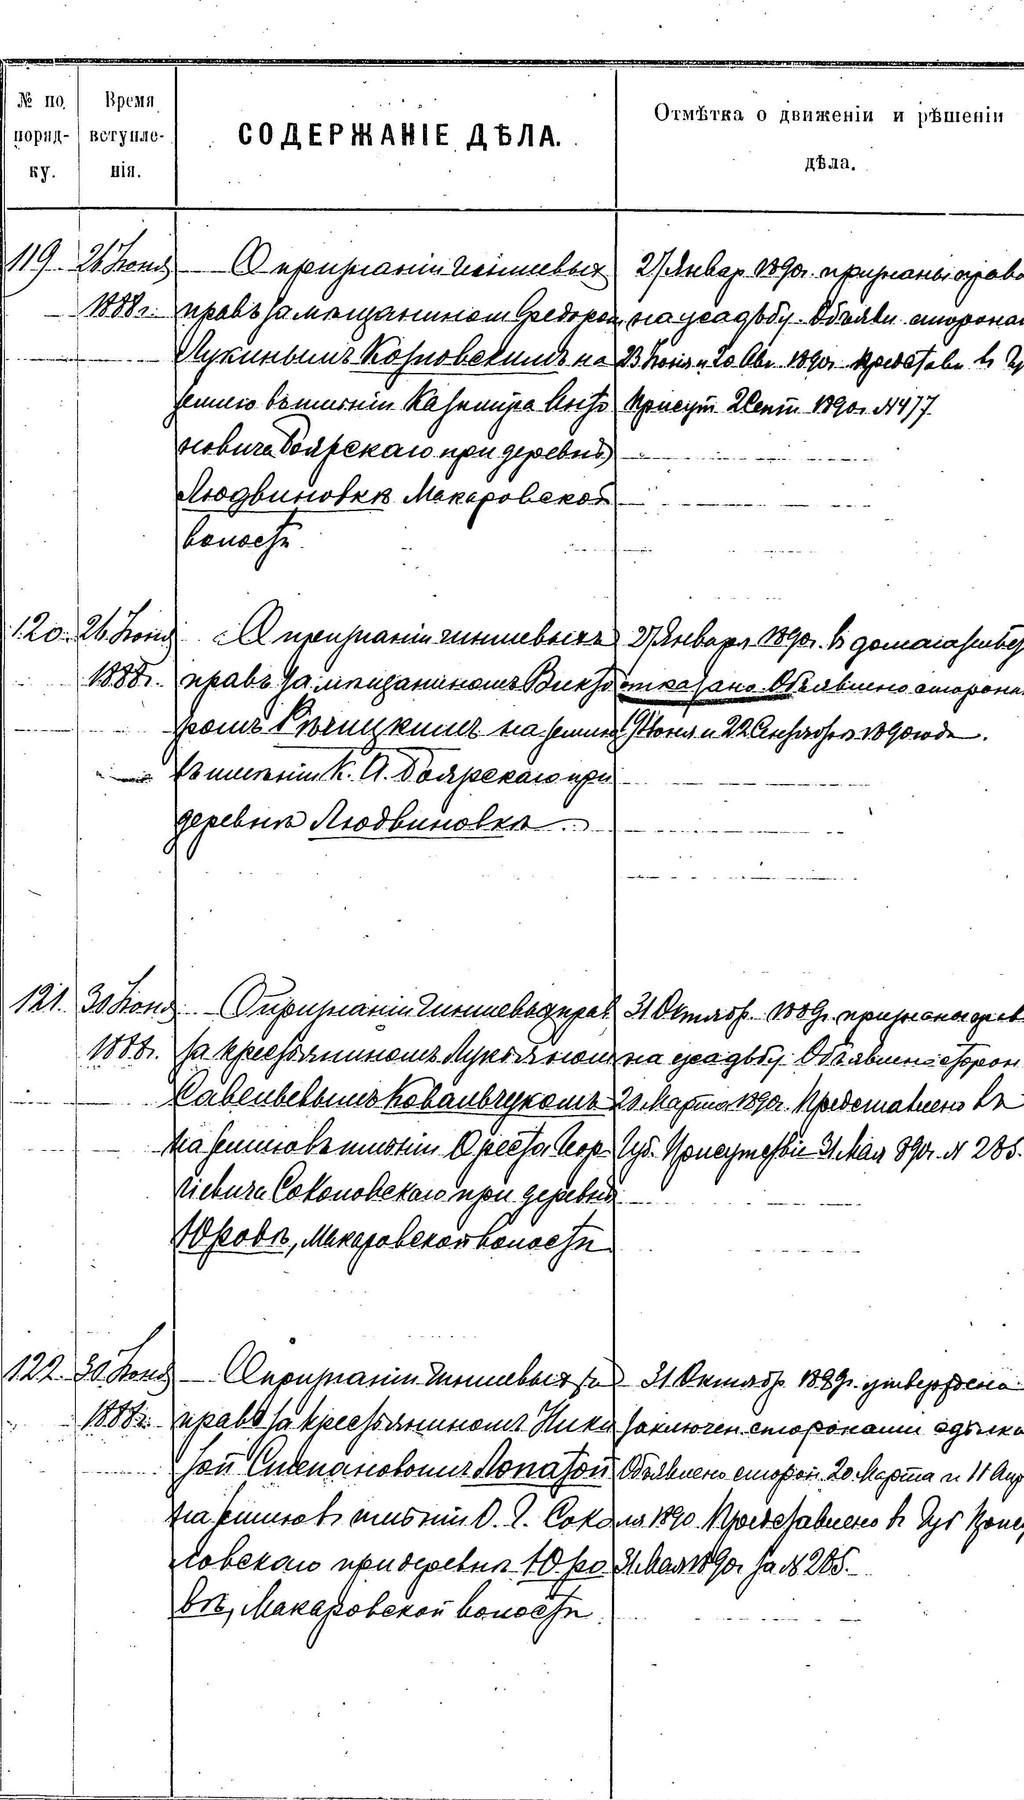 № по поряд-ку.
Время вступле-нія.
СОДЕРЖАНІЕ ДѢЛА.
Отмѣтка о движеніи и рѣшеніи дѣла.
119
26 Іюня
1888 г.
О признаніи чиншевыхъ
правъ за мещаниномъ Федором
Лукинымъ Козловскимъ на
землю въ имѣніи Казимира Анто
новича Боярскаго при деревнѣ
Людвиновкѣ Макаровской
волости
27 Январ 1890 г. признаны право
на усадьбу. Объявл сторонам
23 Іюня и 20 Авг 1890 г. Представл въ Гу
Присут 2 Сент 1890 г. № 477
120
26 Іюня
1888 г.
О признаніи чиншевыхъ
правъ за мещаниномъ Викто
ромъ Рѣчицкимъ на землю
въ имѣніи К. А. Боярскаго при
деревнѣ Людвиновкѣ
27 Января 1890 г. въ домогательс
отказано. Объявлено сторона
19 Іюня и 22 Сентября 1890 года.
121.
30 Іюня
1888 г.
О признаніи чиншевых прав
за крестьяниномъ Лукьяном
Савельевымъ Ковальчукомъ
на землю въ имѣніи Ореста Геор-
гіевича Соколовскаго при деревнѣ
Юровѣ, Макаровской волости
31 Октябр. 1889 г. признаны прав
на усадьбу. Объявлено сторон
20 Марта 1890 г. Представлено въ
Губ. Присутствіе 31 Мая 890 г. № 285.
122
30 Іюня
1888 г.
О признаніи чиншевых
правъ за крестьяниномъ Ники
той Степановымъ Лопатой
на землю въ имѣніи О. Г. Соко
ловскаго при деревнѣ Юро
вѣ, Макаровской волости
31 Октябр 1889 г. утверждена
заключен. сторонами сдѣлка
Объявлено сторон. 20 Марта и 11 Апр
ля 1890. Представлено въ Губ Прису
31 Мая 1890 г за № 285.